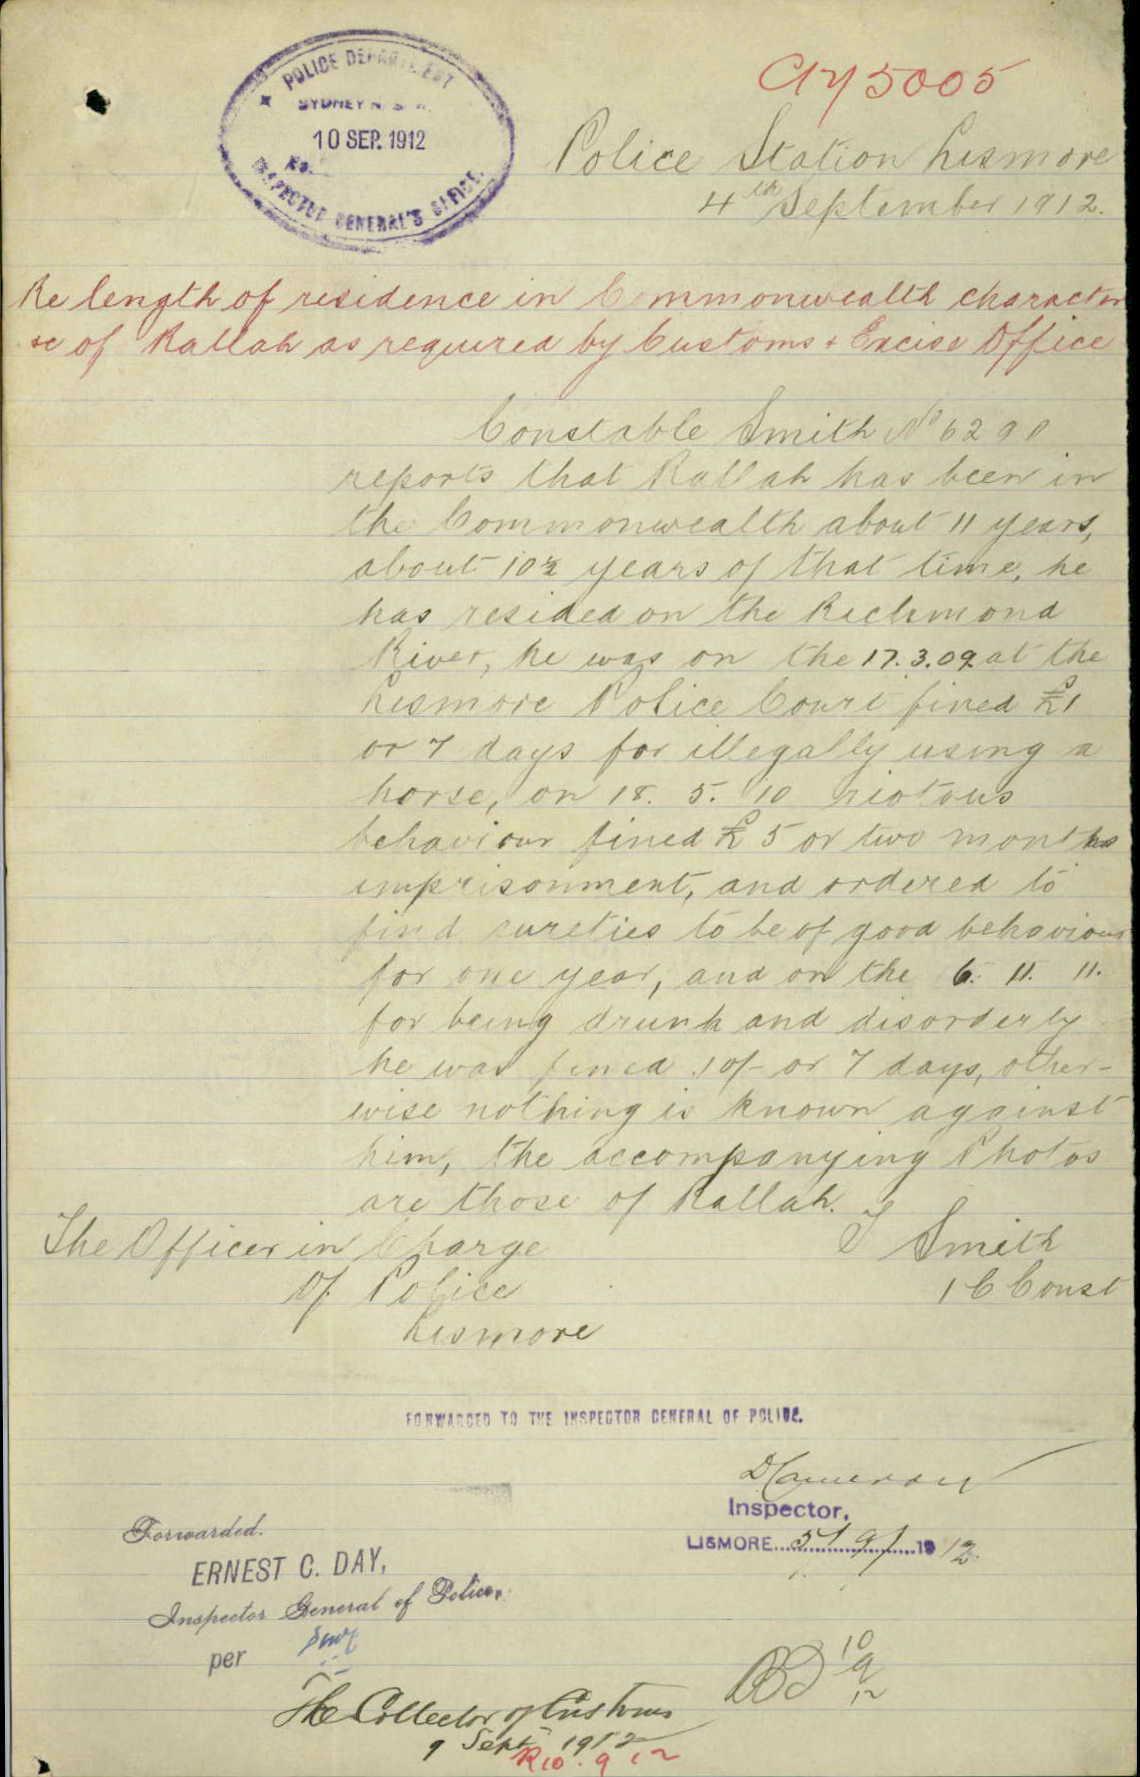 POLICE DEPARTMENT
SYDNEY N. S. W.
10 SEP. 1912
INSPECTOR GENERAL'S OFFICE.
Police Station Lismore
4th September 1912.
Re length of residence in Commonwealth character
&c of Rallah as required by Customs & Excise Office
Constable Smith No 6290
reports that Rallah has been in
the Commonwealth about 11 years,
about 10½ years of that time, he
has resided on the Richmond
River, he was on the 17.3.09. at the
Lismore Police Court fined £1
or 7 days for illegally using a
horse, on 18. 5. 10 riotous
behaviour fined £5 or two months
imprisonment, and ordered to
find sureties to be of good behaviour
for one year, and on the 6. 11. 11.
for being drunk and disorderly
he was fined 10/- or 7 days, other-
wise nothing is known against
him, the accompanying Photos
are those of Rallah.
Smith
1 C Const
The Officer in Charge
Of Police
Lismore
FORWARDED TO THE INSPECTOR GENERAL OF POLICE.
D Cameron
Inspector,
LISMORE 5/9/1912.
Forwarded.
ERNEST C. DAY,
Inspector General of Police.
per
10
9
12
The Collector of Customs
9 Sept 1912
R10.9.12